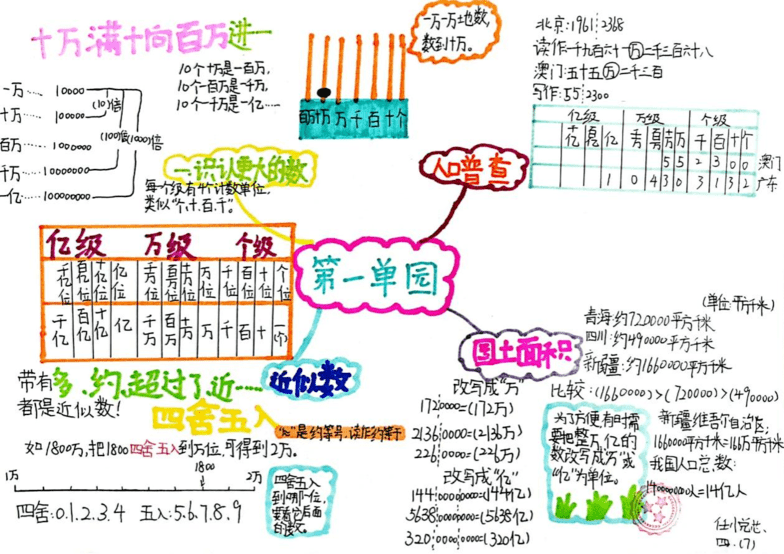 十万满十向百万进一
一万…… 10000
十万…… 100000
百万…… 1000000
千万…… 10000000
一亿…… 100000000
(10)倍
(100)倍
(1000)倍
10个十万是一百万,
10个一百万是一千万,
10个一千万是一亿……
百万 十万 万 千 百 十 个
一万一万土也数,
数到十万。
北京:1961┊2368
读作:一千九百六十一万二千三百六十八
澳门:五十五万二千三百
写作:55┊2300
亿级 万级 个级
十亿 百亿 亿 千万 百万 十万 万 千 百 十 个
5 5 2 3 0 0 澳门
1 0 4 3 0 3 1 3 2 广东
人口普查
一.识认更大的数
每个级有4个计数单位,
类似“个、十、百、千”。
亿级 万级 个级
千亿位 百亿位 十亿位 亿位 千万位 百万位 十万位 万位 千位 百位 十位 个位
千亿 百亿 十亿 亿 千万 百万 十万 万 千 百 十 一(个)
第一单园
国土面积
(单位:平方千米)
青海:约720000平方千米
四川:约490000平方千米
新疆:约1660000平方千米
比较:(1660000)>(720000)>(490000)
近似数
带有多、约、超过了、近……
都是近似数!
四舍五入
“≈”是约等号,读作约等于
如1800万,把1800四舍五入到万位,可得到2万。
1万 1800 2万
四舍:0.1.2.3.4 五入:5.6.7.8.9
四舍五入
到哪一位,
要看它后面
的数。
改写成“万”
172┊0000=(172万)
2136┊0000=(2136万)
226┊0000=(226万)
改写成“亿”
144┊00000000=(144亿)
5638┊00000000=(5638亿)
320┊00000000=(320亿)
为了方便,有时需
要把整万、亿的
数改写成“万”或
“亿”为单位。
新疆维吾尔自治区:
1660000平方千米=166万平方千米
我国人口总数:
1400000000人=14亿人
四.(7)